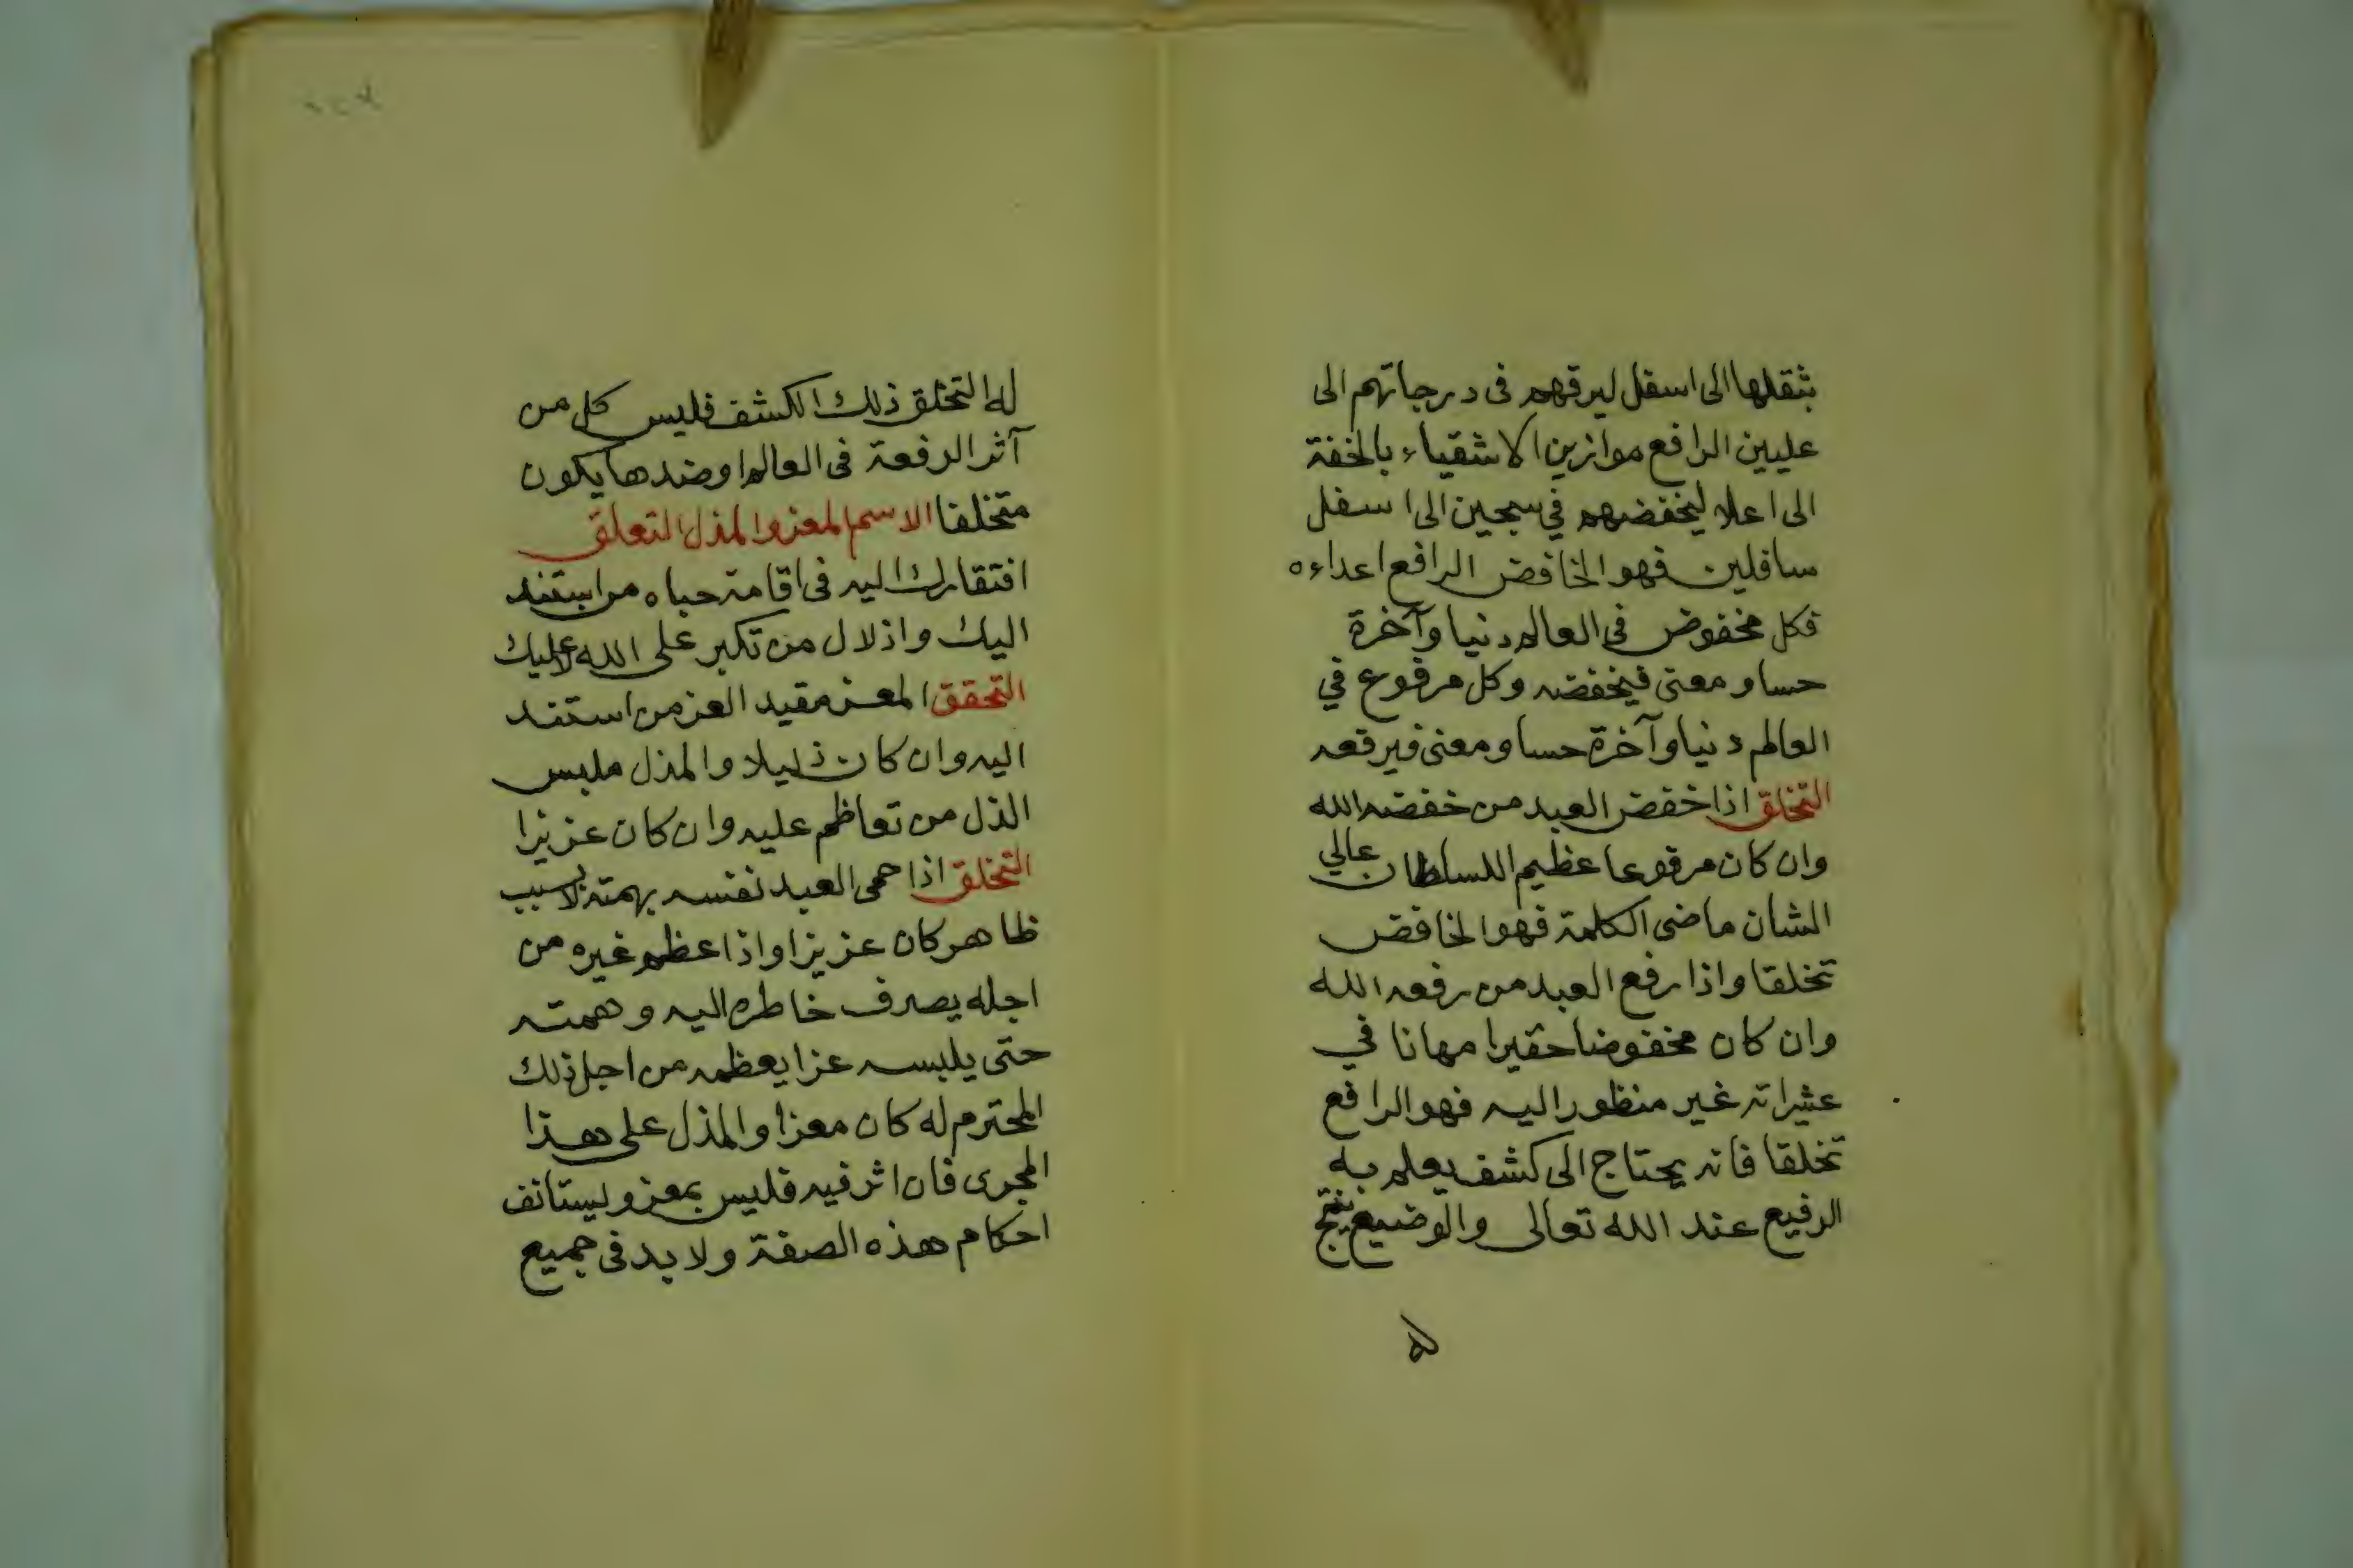 بثقلها الى اسفل ليرقهم فى درجاتهم الى
عليين الرافع موازين الاشقياء بالخفة
الى اعلا ليخفضهم في سجين الى اسفل
سافلين فهو الخافض الرافع اعداءه
فكل مخفوض فى العالم دنيا وآخرة
حسا و معنى فيخفضه وكل مرفوع في
العالم دنيا وآخرة حسا و معنى فيرفعه
التخلق اذا خفض العبد من خفضه الله
وان كان مرفوعا عظيم السلطان عالي
الشان ماضى الكلمة فهو الخافض
تخلقا واذا رفع العبد من رفعه الله
وان كان مخفوضا حقيرا مهانا في
عشراته غير منظور اليه فهو الرافع
تخلقا فانه يحتاج الى كشف يعلم به
الرفيع عند الله تعالى والوضيع ينتج
له
له التخلق ذلك الكشف فليس كل من
آثر الرفعة فى العالم او ضدها يكون
متخلقا الاسم المعز والمذل التعلق
افتقارك اليه فى اقامة حباه من استند
اليك واذلال من تكبر على الله لا عليك
التحقق المعز مقيد العز من استند
اليه وان كان ذليلا والمذل ملبس
الذل من تعاظم عليه وان كان عزيزا
التخلق اذا حمى العبد نفسه بهمته لا بسبب
ظاهر كان عزيزا واذا عظم غيره من
اجله يصرف خاطره اليه وهمته
حتى يلبسه عزا يعظمه من اجل ذلك
المحترم له كان معزا والمذل على هذا
المجرى فان اثر فيه فليس بمعز ويستانف
احكام هذه الصفة ولا بد فى جميع